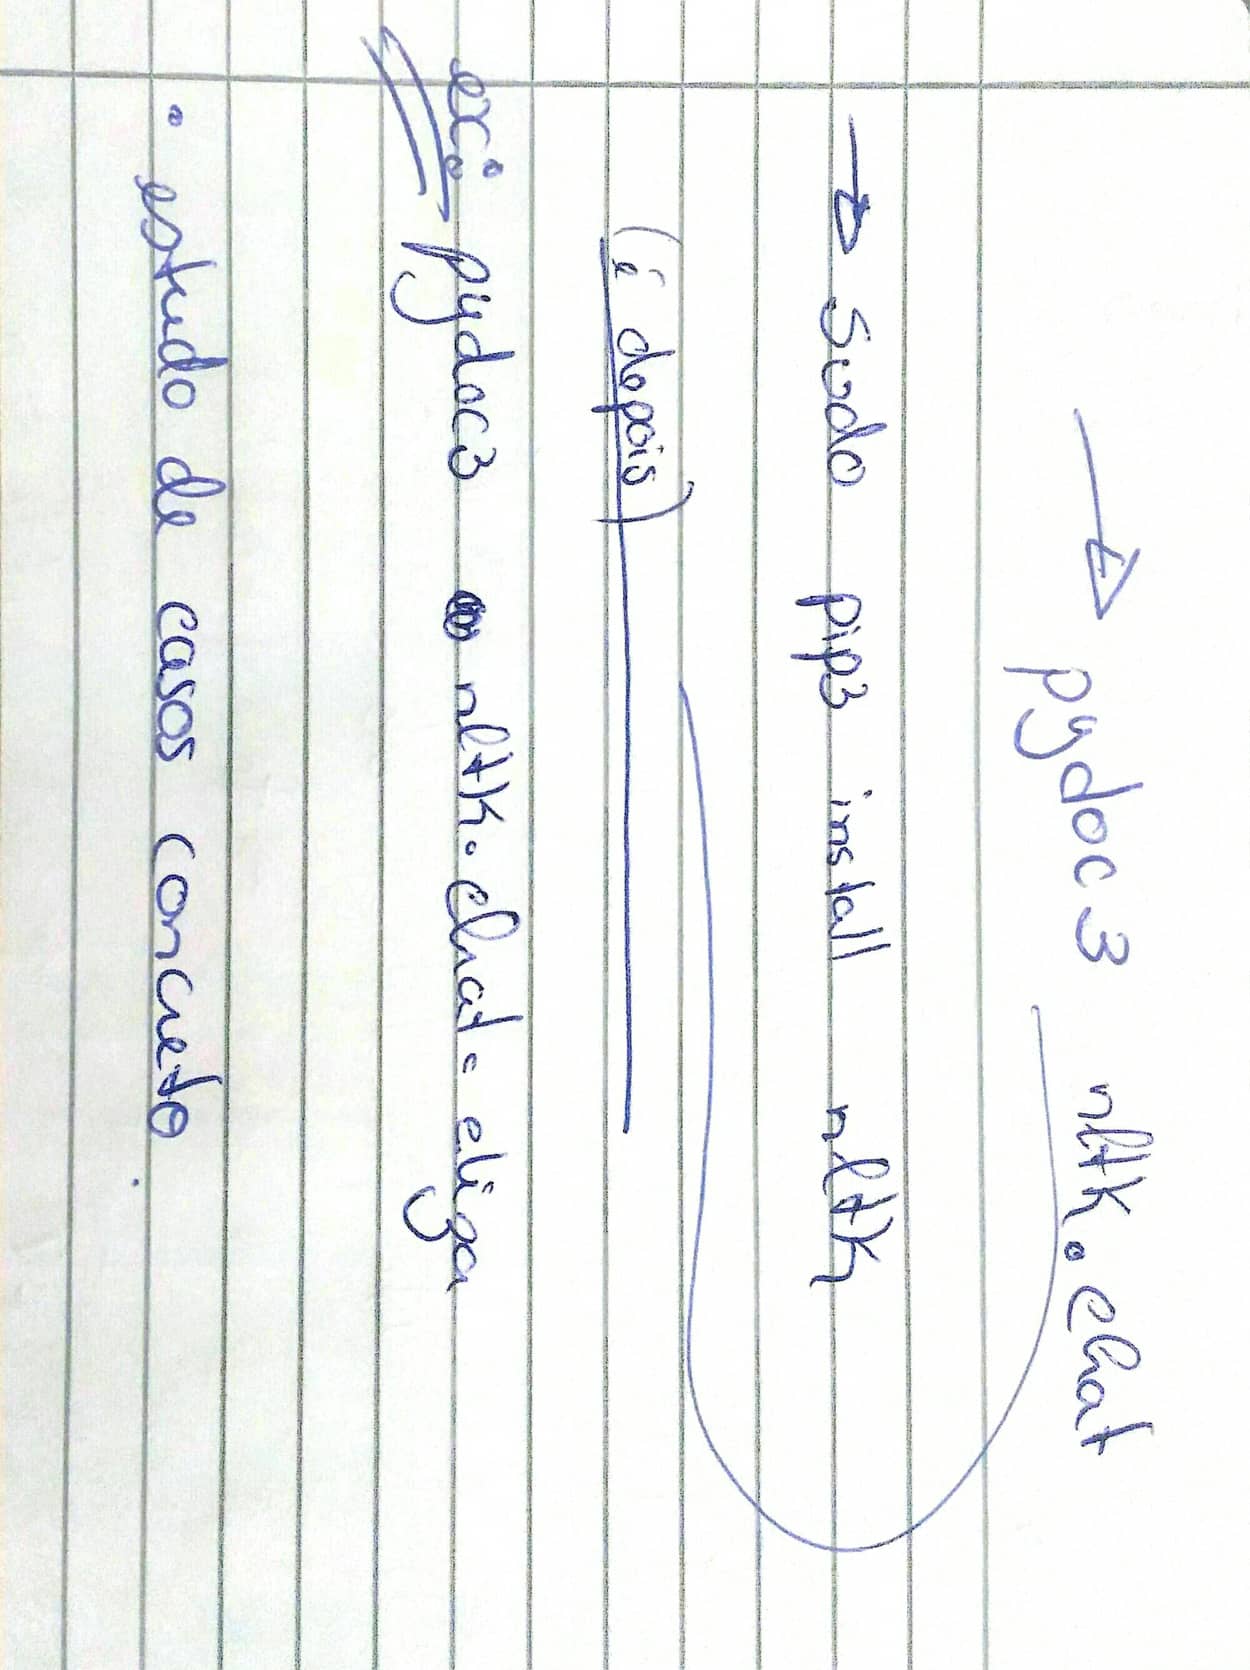 → pydoc3 nltk.chat
→ sudo pip3 install nltk
(i depois)
ex: pydoc3 nltk.chat.eliza
• estudo de casos concreto.